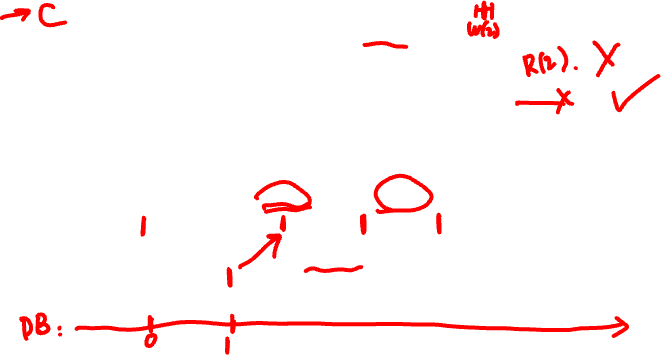 → C
W(2)
R(2). X
✓
DB:
0
1